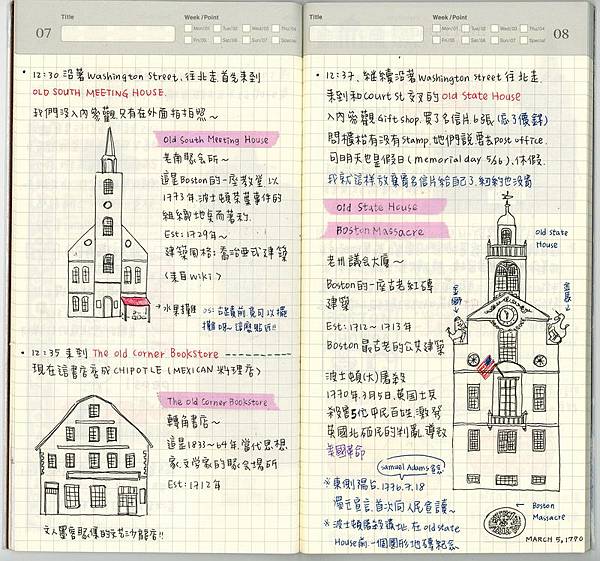 07
Title
Week / Point
Mon/01 Tue/02 Wed/03 Thu/04
Fri/05 Sat/06 Sun/07 Special
• 12:30 沿著Washington Street, 往北走, 首先來到
OLD SOUTH MEETING HOUSE.
我們沒入內參觀, 只有在外面拍拍照~
Old South Meeting House
老南聚會所~
這是Boston的一座教堂, 以
1773年, 波士頓茶葉事件的
組織地臭而著称
Est: 1729年~
建築風格: 喬治亞式建築
(來自wiki)
→ 水果攤
PS: 古蹟前竟可以擺
攤呢~ 這麼貼近!!
• 12:35 來到 The old Corner Bookstore
現在這書店居成 CHIPOTLE (MEXICAN 料理店)
The old Corner Bookstore
轉角書店~
這是1833~64年, 當代思想
家, 文學家的聚會場所
Est: 1712年
文人墨客聚集的文藝沙龍店!!
Title
Week / Point
Mon/01 Tue/02 Wed/03 Thu/04
Fri/05 Sat/06 Sun/07 Special
08
• 12:37, 繼續沿著Washington Street往北走.
來到和Court St. 交叉的 Old State House
入內參觀 Gift shop. 買了名信片 6張.
問櫃枱有沒有Stamp, 她們說要去Post office.
可明天也是假日 (memorial day 5/26), 休假.
我就這樣放棄寄名信片給自己了, 紐約也沒寄
Old State House
Boston Massacre
老州議會大廈~
Boston的一座古老紅磚
建築
Est: 1712~1713年
Boston 最古老的公共建築
波士頓(大)屠殺
1770年, 3月5日, 英國士兵
殺害5位平民百姓, 激發
英國北殖民的判亂, 導致
美國革命
Samuel Adams 宣言
※ 東側陽台, 1776.7.18
獨立宣言, 首次向人民宣讀~
※ 波士頓屠殺遺址, 在 old state
House前, 一個圓形地磚紀念
old state
House
金獅
Boston
Massacre
MARCH 5, 1770